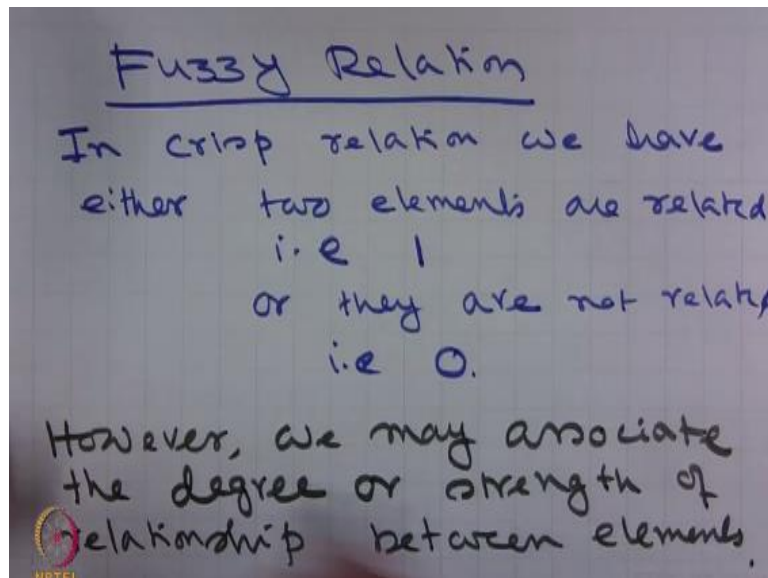 Fuzzy Relation
In crisp relation we have
either two elements are related
i.e 1
or they are not relate
i.e 0.
However, we may associate
the degree or strength of
relationship between elements.
NPTEL